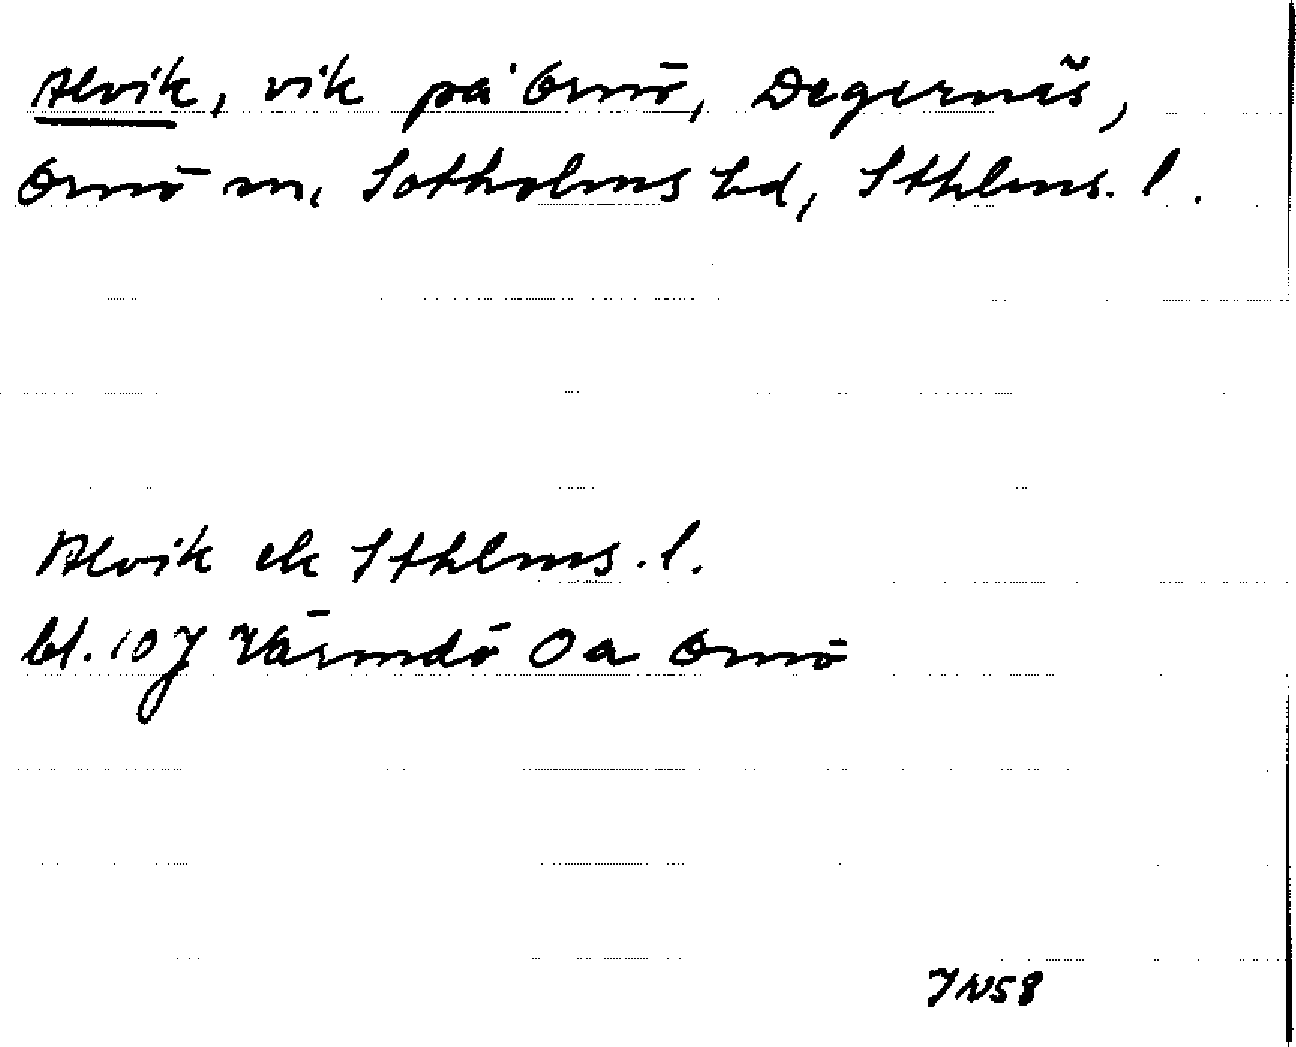 Alvik, vik på Ornö, Degernäs,
Ornö sn, Sotholms hd, Sthlms. l.
Alvik ek Sthlms. l.
bl. 10 J Värmdö Oa Ornö
JN58